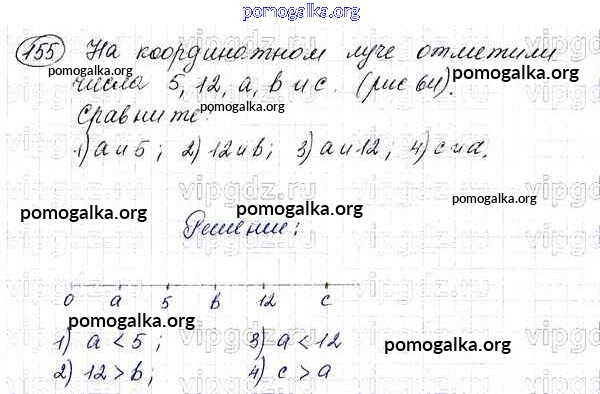 pomogalka.org
155 На координатном луче отметили
pomogalka.org pomogalka.org
числа 5, 12, a, b и c. (рис 64).
pomogalka.org
Сравните:
1) a и 5; 2) 12 и b; 3) a и 12; 4) c и a.
vipgdz.ru vipgdz.ru vipgdz.ru
pomogalka.org pomogalka.org pomogalka.org
Решение:
0 a 5 b 12 c
pomogalka.org
1) a < 5; 3) a < 12
pomogalka.org
2) 12 > b; 4) c > a